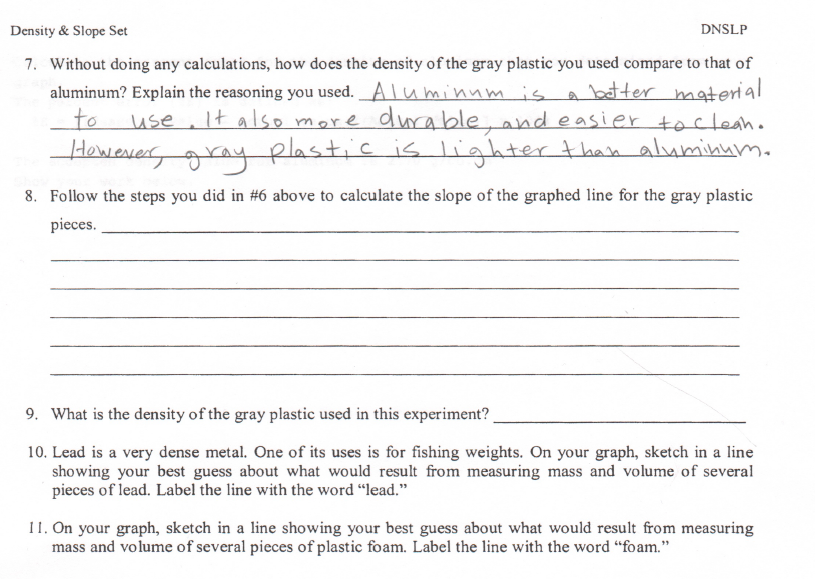 Density & Slope Set DNSLP
7. Without doing any calculations, how does the density of the gray plastic you used compare to that of
aluminum? Explain the reasoning you used. Aluminum is a better material
to use. It also more durable, and easier to clean.
However, gray plastic is lighter than aluminum.
8. Follow the steps you did in #6 above to calculate the slope of the graphed line for the gray plastic
pieces.
9. What is the density of the gray plastic used in this experiment?
10. Lead is a very dense metal. One of its uses is for fishing weights. On your graph, sketch in a line
showing your best guess about what would result from measuring mass and volume of several
pieces of lead. Label the line with the word “lead.”
11. On your graph, sketch in a line showing your best guess about what would result from measuring
mass and volume of several pieces of plastic foam. Label the line with the word “foam.”